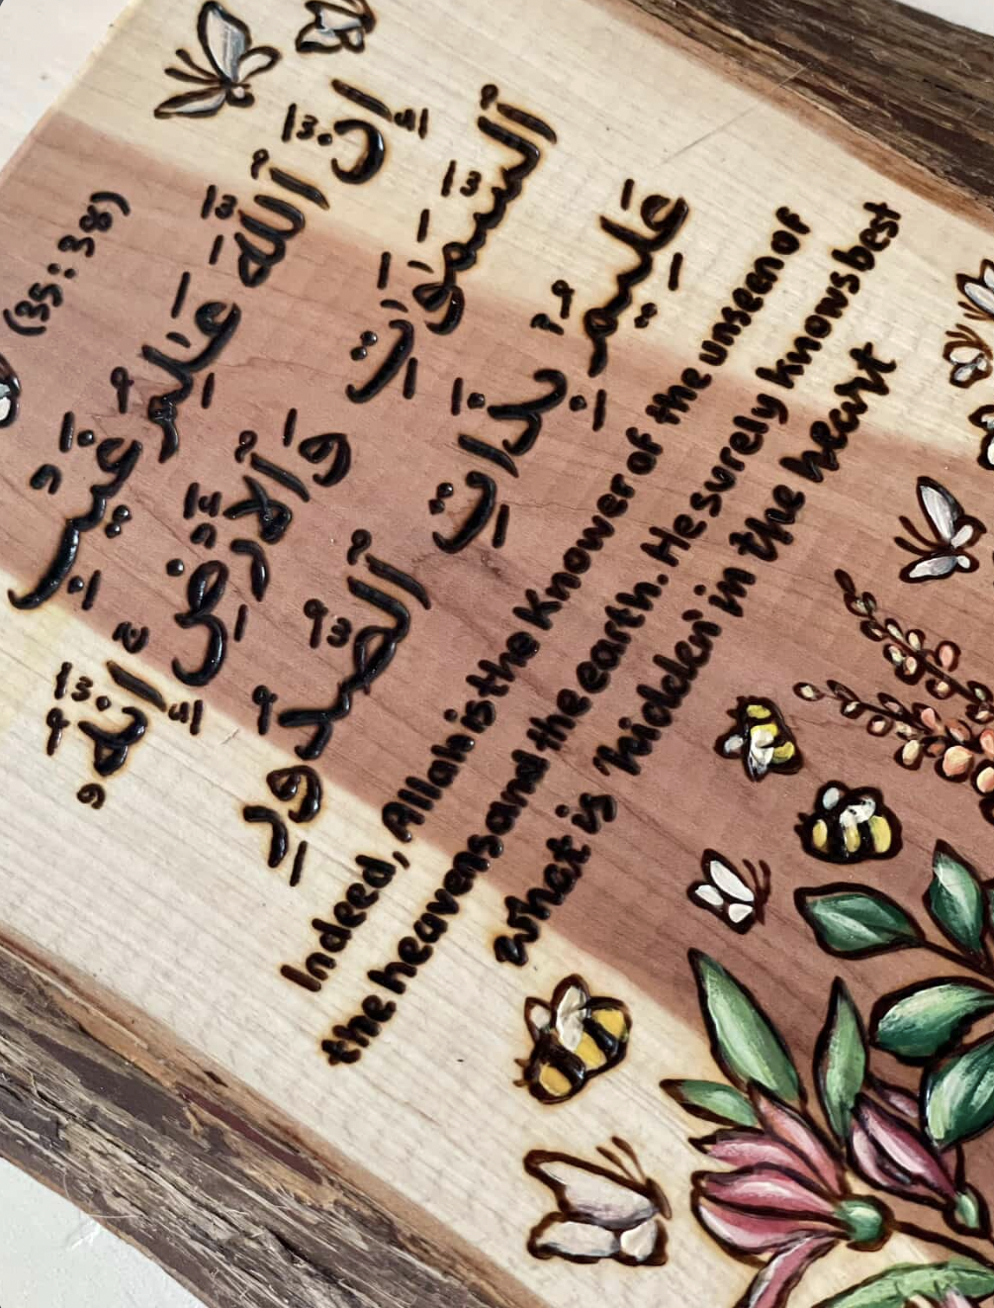 (35:38)
إِنَّ ٱللَّهَ عَٰلِمُ غَيْبِ
ٱلسَّمَٰوَٰتِ وَٱلْأَرْضِ إِنَّهُۥ
عَلِيمٌۢ بِذَاتِ ٱلصُّدُورِ
Indeed, Allah is the Knower of the unseen of
the heavens and the earth. He surely knows best
what is 'hidden' in the heart